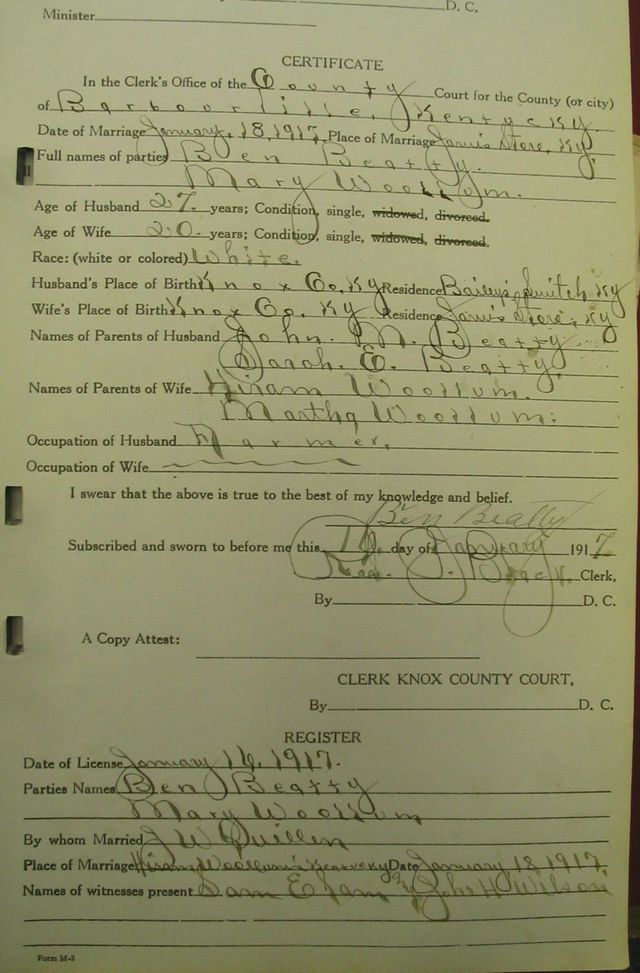 D. C.
Minister
CERTIFICATE
In the Clerk's Office of the County Court for the County (or city)
of Barbourville, Kentucky.
Date of Marriage January, 18, 1917, Place of Marriage Jarvis Store, Ky.
Full names of parties Ben Beatty.
Mary Woollum.
Age of Husband 27. years; Condition, single, widowed, divorced.
Age of Wife 20. years; Condition, single, widowed, divorced.
Race: (white or colored) White.
Husband's Place of Birth Knox Co, Ky Residence Bailey's Switch Ky
Wife's Place of Birth Knox Co, Ky Residence Jarvis Store, Ky
Names of Parents of Husband John. M. Beatty
Sarah. E. Beatty.
Names of Parents of Wife Hiram Woollum.
Martha Woollum.
Occupation of Husband Farmer,
Occupation of Wife
I swear that the above is true to the best of my knowledge and belief.
Ben Beatty
Subscribed and sworn to before me this 16 day of January 1917
Read. Clerk,
By D. C.
A Copy Attest:
CLERK KNOX COUNTY COURT,
By D. C.
REGISTER
Date of License January 16, 1917.
Parties Names Ben Beatty
Mary Woollum
By whom Married J W Quillen
Place of Marriage Hiram Woollum's Kentucky Date January 18 1917
Names of witnesses present Sam and John H Wilson
Form M-3